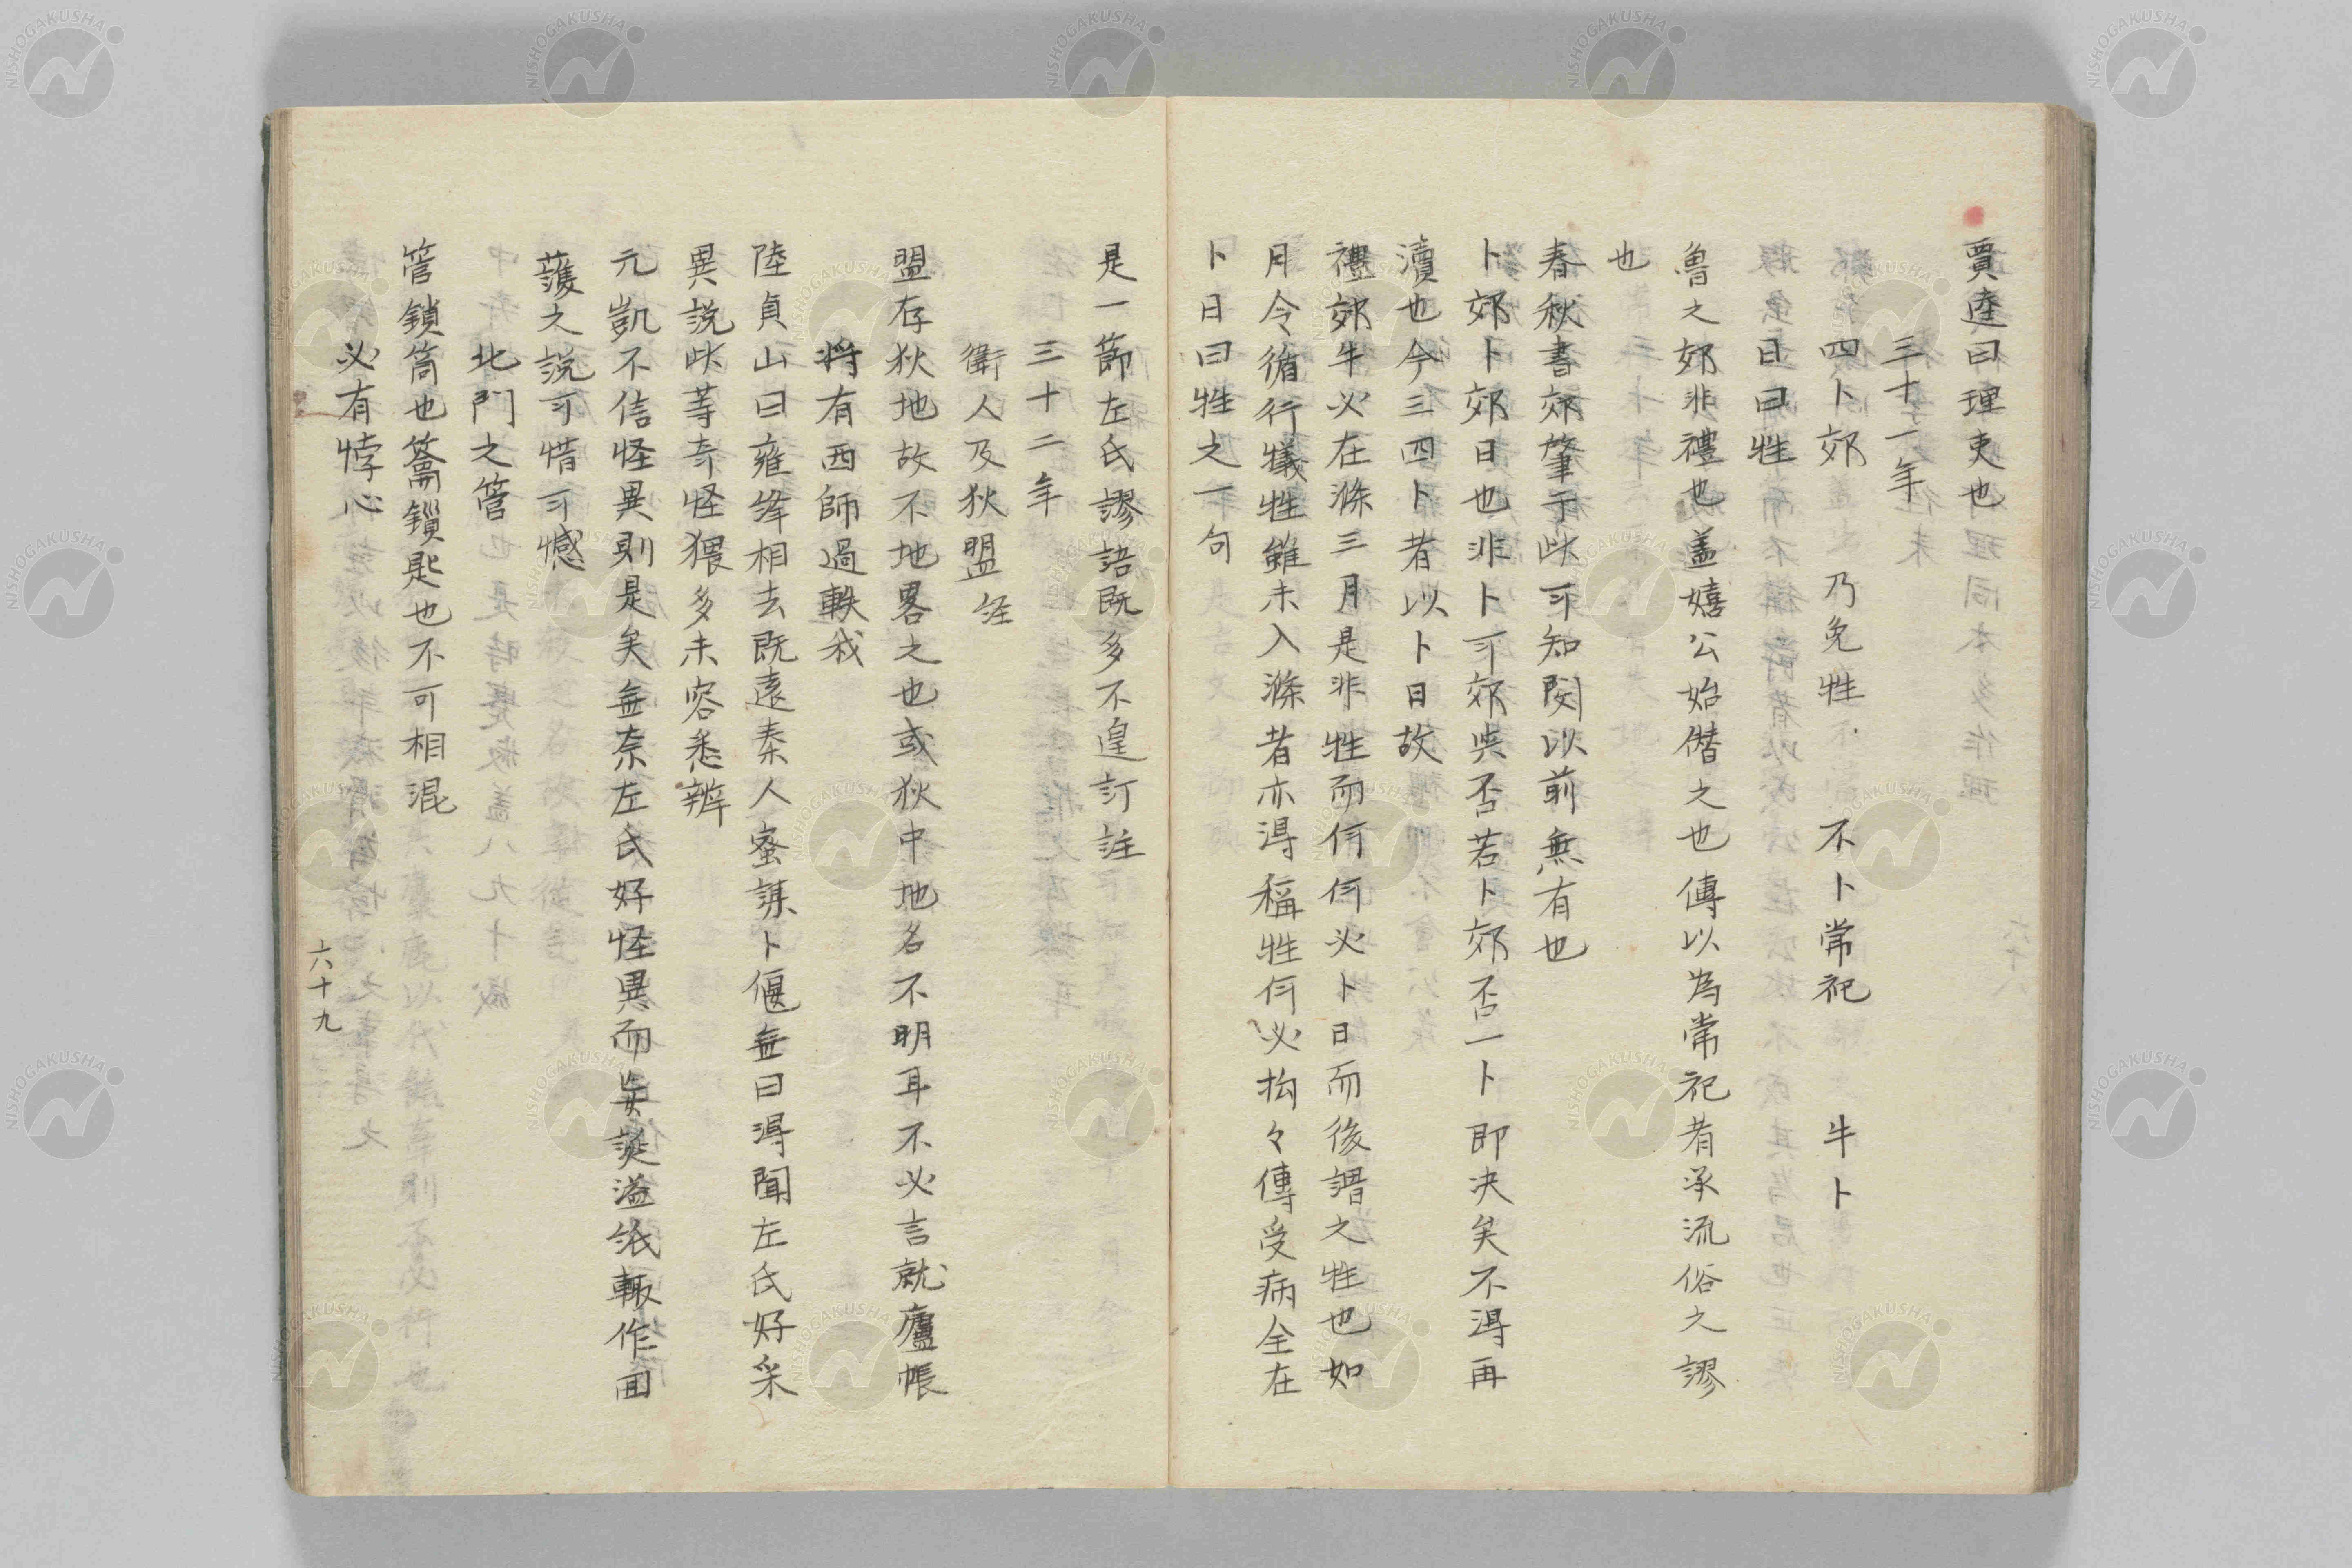 賈逵曰理吏也
三十一年
四卜郊　乃免牲　不卜常祀　牛卜
日曰牲
魯之郊非禮也盖嬉公始僭之也傳以為常祀者承流俗之謬
也
春秋書郊肇于此可知閔以前無有也
卜郊卜郊日也非卜可郊與否若卜郊否一卜即决矣不得再
瀆也今三四卜者以卜日故
禮郊牛必在滌三月是非牲而何何必卜日而後謂之牲也如
月令循行犧牲雖未入滌者亦得稱牲何必拘々傳受病全在
卜日曰牲之一句
是一節左氏謬語既多不遑訂註
三十二年
衛人及狄盟 経
盟存狄地故不地畧之也或狄中地名不明耳不必言就廬帳
将有西師過軼我
陸貞山曰雍絳相去既遠秦人密謀卜偃無曰得聞左氏好采
異説此等奇怪猥多未容悉辨
元凱不信怪異則是矣無奈左氏好怪異而妄誕溢紙輙作回
護之説可惜可憾
北門之管
管鎖筒也籥鎖匙也不可相混
必有悖心
六十九
NISHOGAKUSHA